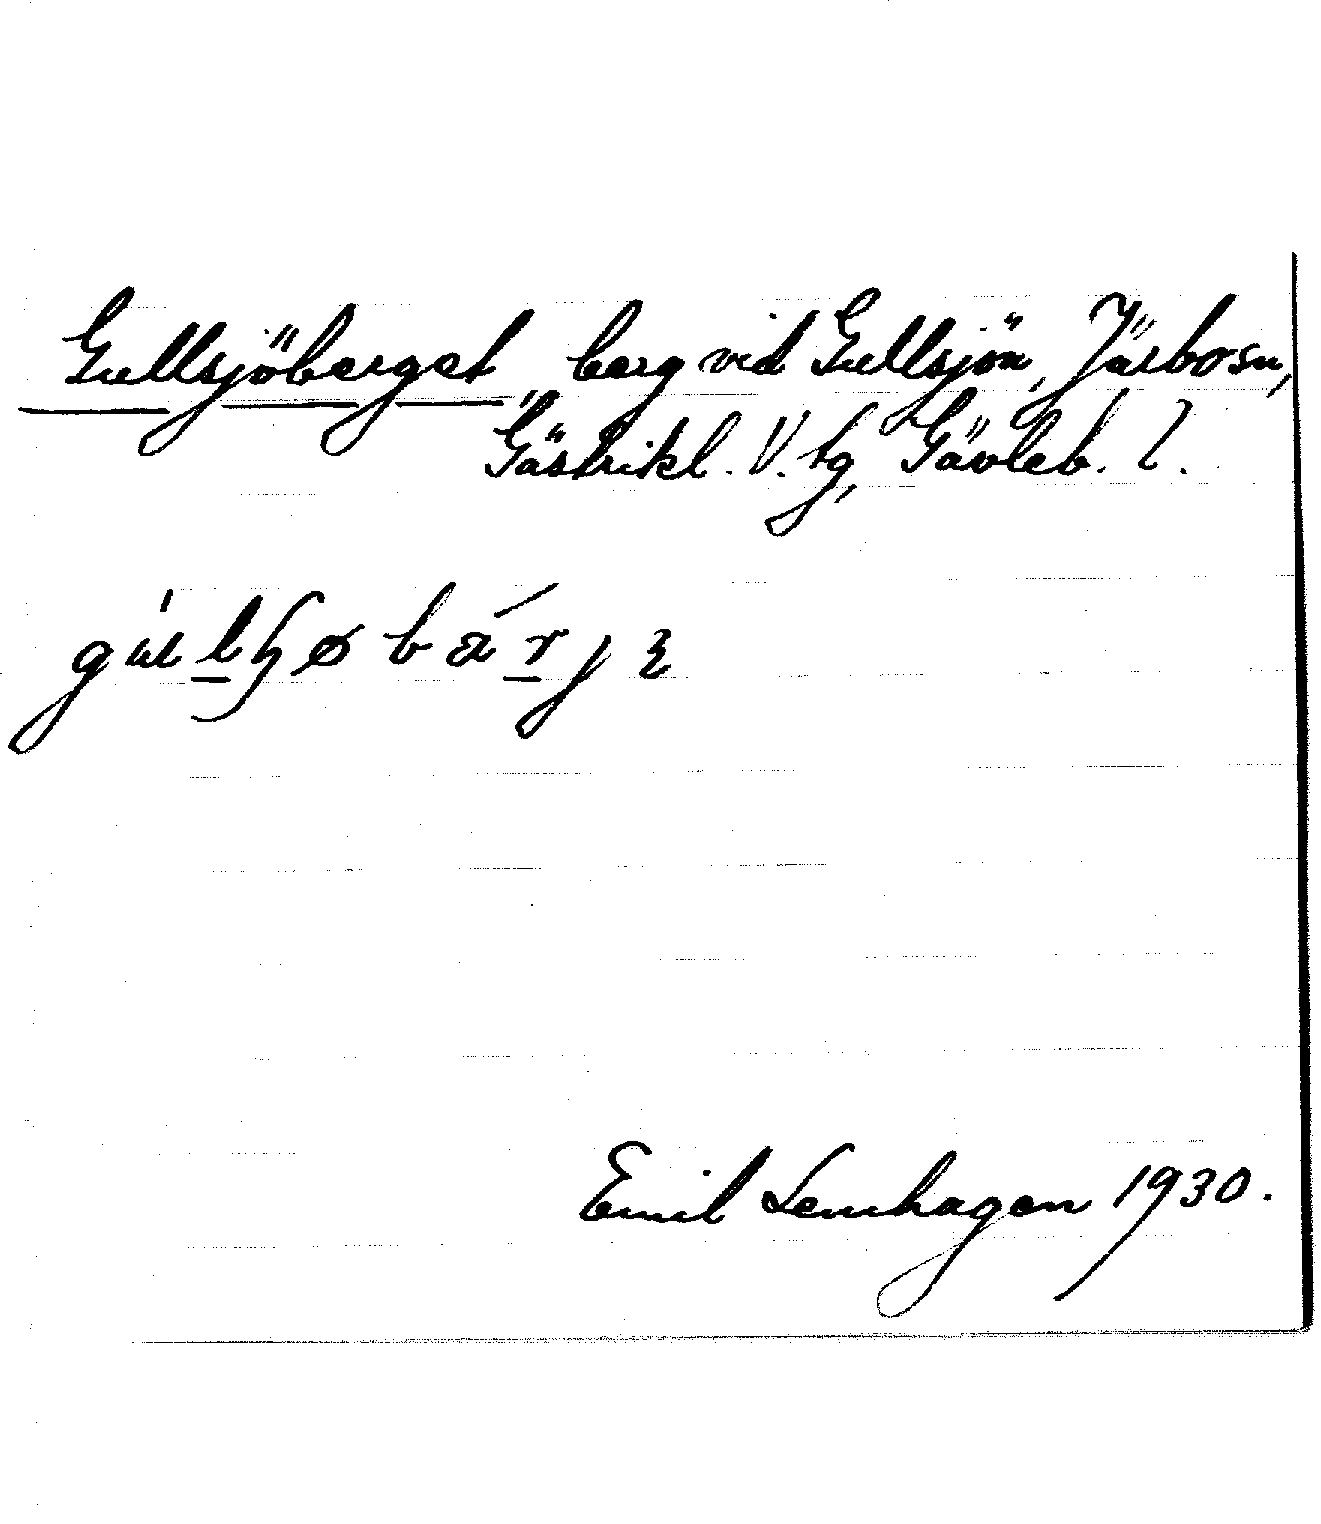 Gullsjöberget, berg vid Gullsjön, Järbo sn,
Gästrikl. V. tg, Gävleb. l.
Emil Lemhagen 1930.